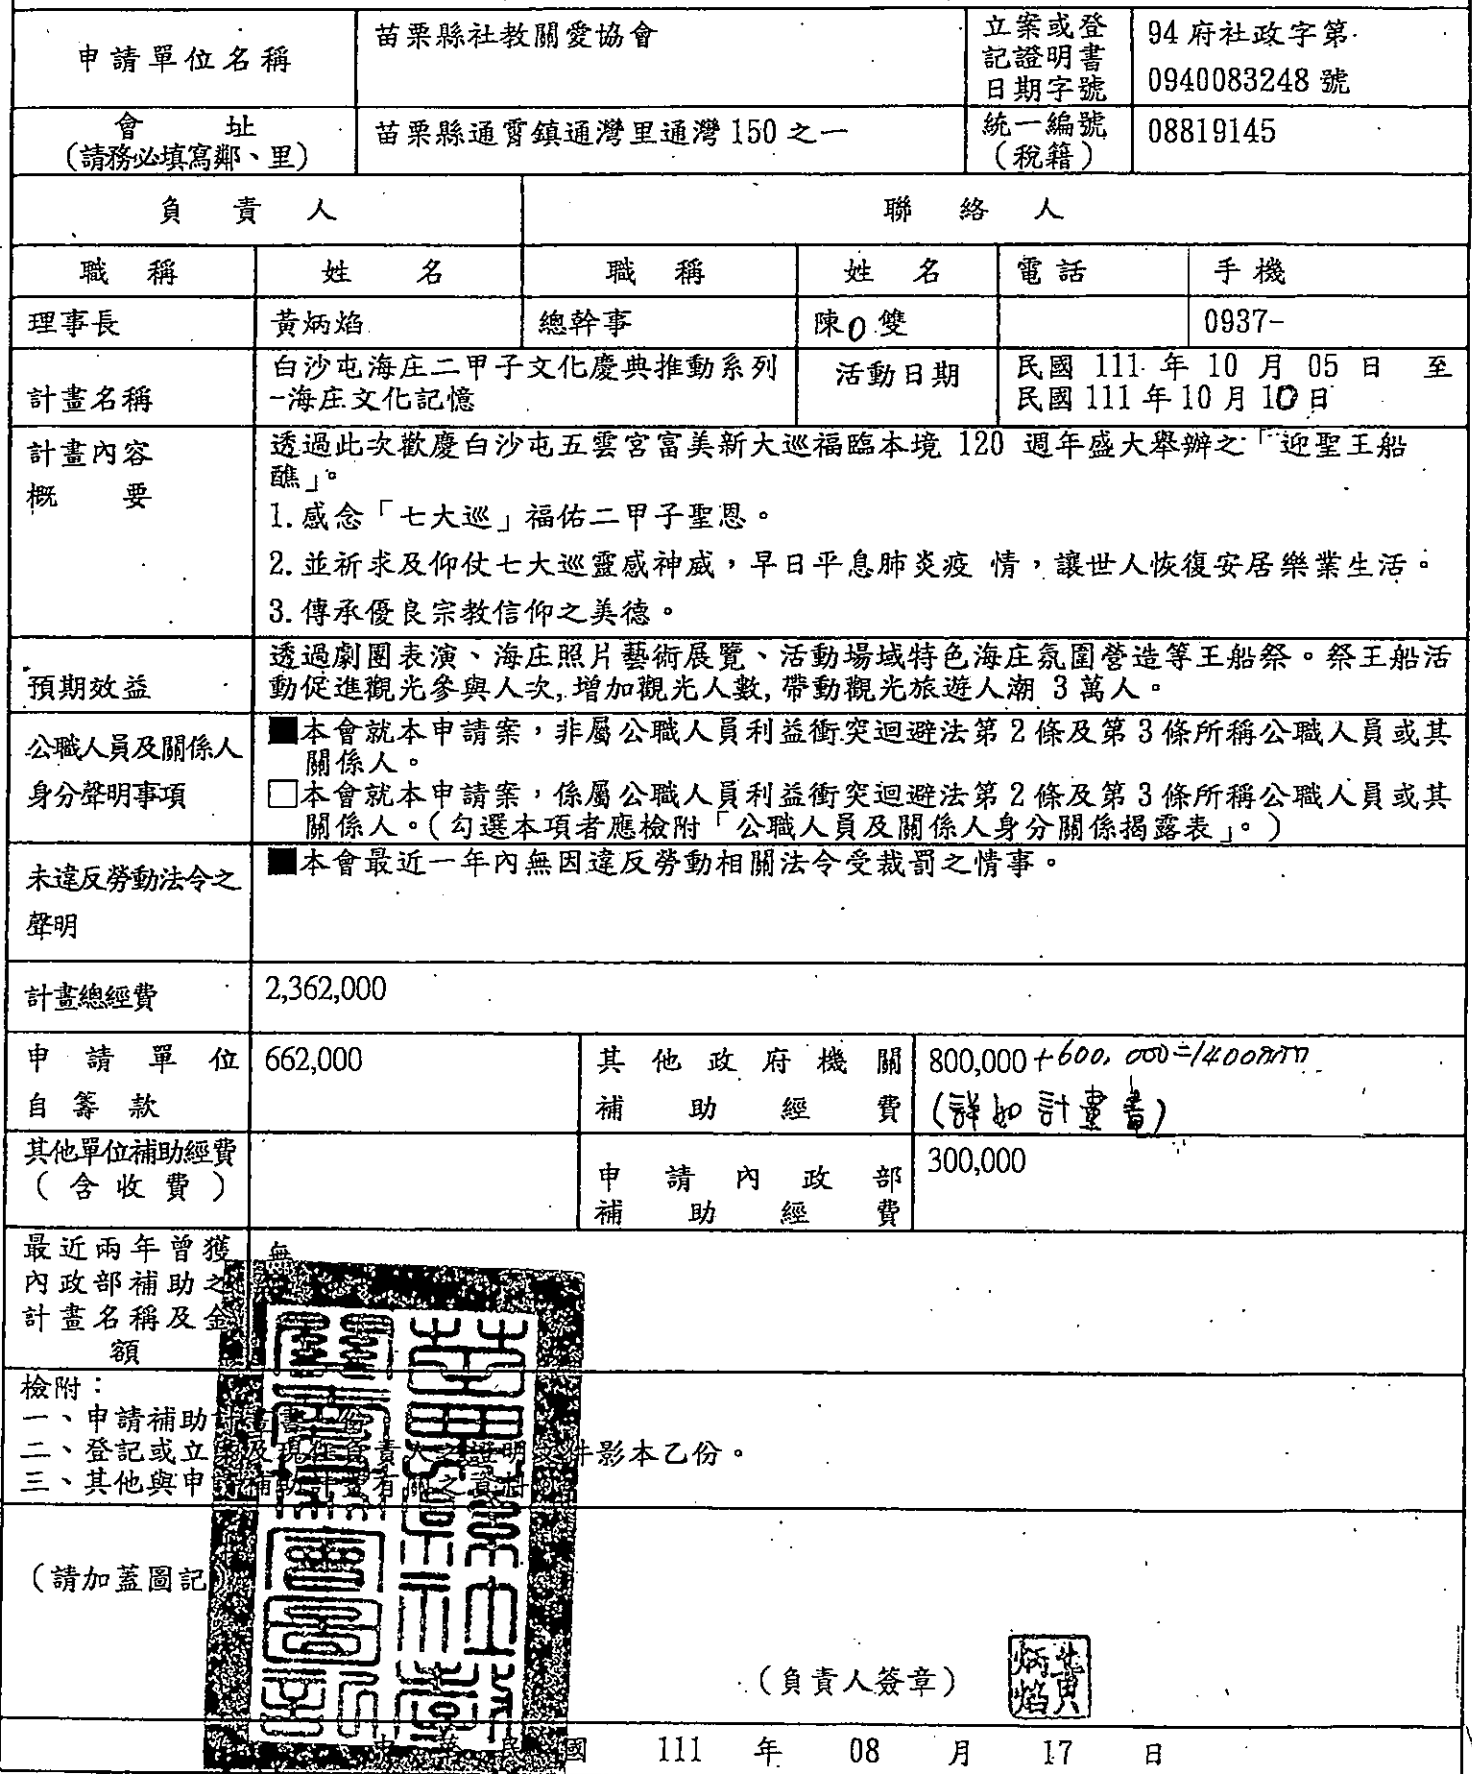 申請單位名稱
苗栗縣社教關愛協會
立案或登
記證明書
日期字號
94府社政字第
0940083248 號
會 址
(請務必填寫鄰、里)
苗栗縣通霄鎮通灣里通灣 150 之一
統一編號
(稅籍)
08819145
負 責 人
聯 絡 人
職 稱
姓 名
職 稱
姓 名
電話
手機
理事長
黃炳焰
總幹事
陳O雙
0937-
計畫名稱
白沙屯海庄二甲子文化慶典推動系列
-海庄文化記憶
活動日期
民國 111 年 10 月 05 日 至
民國 111 年 10 月 10 日
計畫內容
概 要
透過此次歡慶白沙屯五雲宮富美新大巡福臨本境 120 週年盛大舉辦之「迎聖王船
醮」。
1.感念「七大巡」福佑二甲子聖恩。
2.並祈求及仰仗七大巡靈感神威,早日平息肺炎疫 情,讓世人恢復安居樂業生活。
3.傳承優良宗教信仰之美德。
預期效益
透過劇團表演、海庄照片藝術展覽、活動場域特色海庄氛圍營造等王船祭。祭王船活
動促進觀光參與人次,增加觀光人數,帶動觀光旅遊人潮 3 萬人。
公職人員及關係人
身分聲明事項
■本會就本申請案,非屬公職人員利益衝突迴避法第2條及第3條所稱公職人員或其
關係人。
□本會就本申請案,係屬公職人員利益衝突迴避法第2條及第3條所稱公職人員或其
關係人。(勾選本項者應檢附「公職人員及關係人身分關係揭露表」。)
未違反勞動法令之
聲明
■本會最近一年內無因違反勞動相關法令受裁罰之情事。
計畫總經費
2,362,000
申請單位
自籌款
662,000
其他政府機關
補助經費
800,000+600,000=1400000
(詳如計畫書)
其他單位補助經費
(含收費)
申請內政部
補助經費
300,000
最近兩年曾獲
內政部補助之
計畫名稱及金
額
無
檢附:
一、申請補助計畫書 份
二、登記或立案及現任負責人之證明文件影本乙份。
三、其他與申請補助計畫有關之資料
(請加蓋圖記)
(負責人簽章)
黃炳焰
中華民國 111 年 08 月 17 日